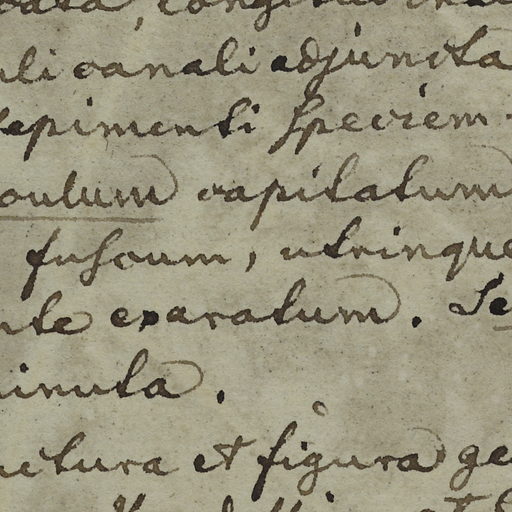 li canali adjuncta
sepimenti speciem
culum capitatum
fuscum, utrinque
nte exaratum. Se
inuta.
ctura et figura ge